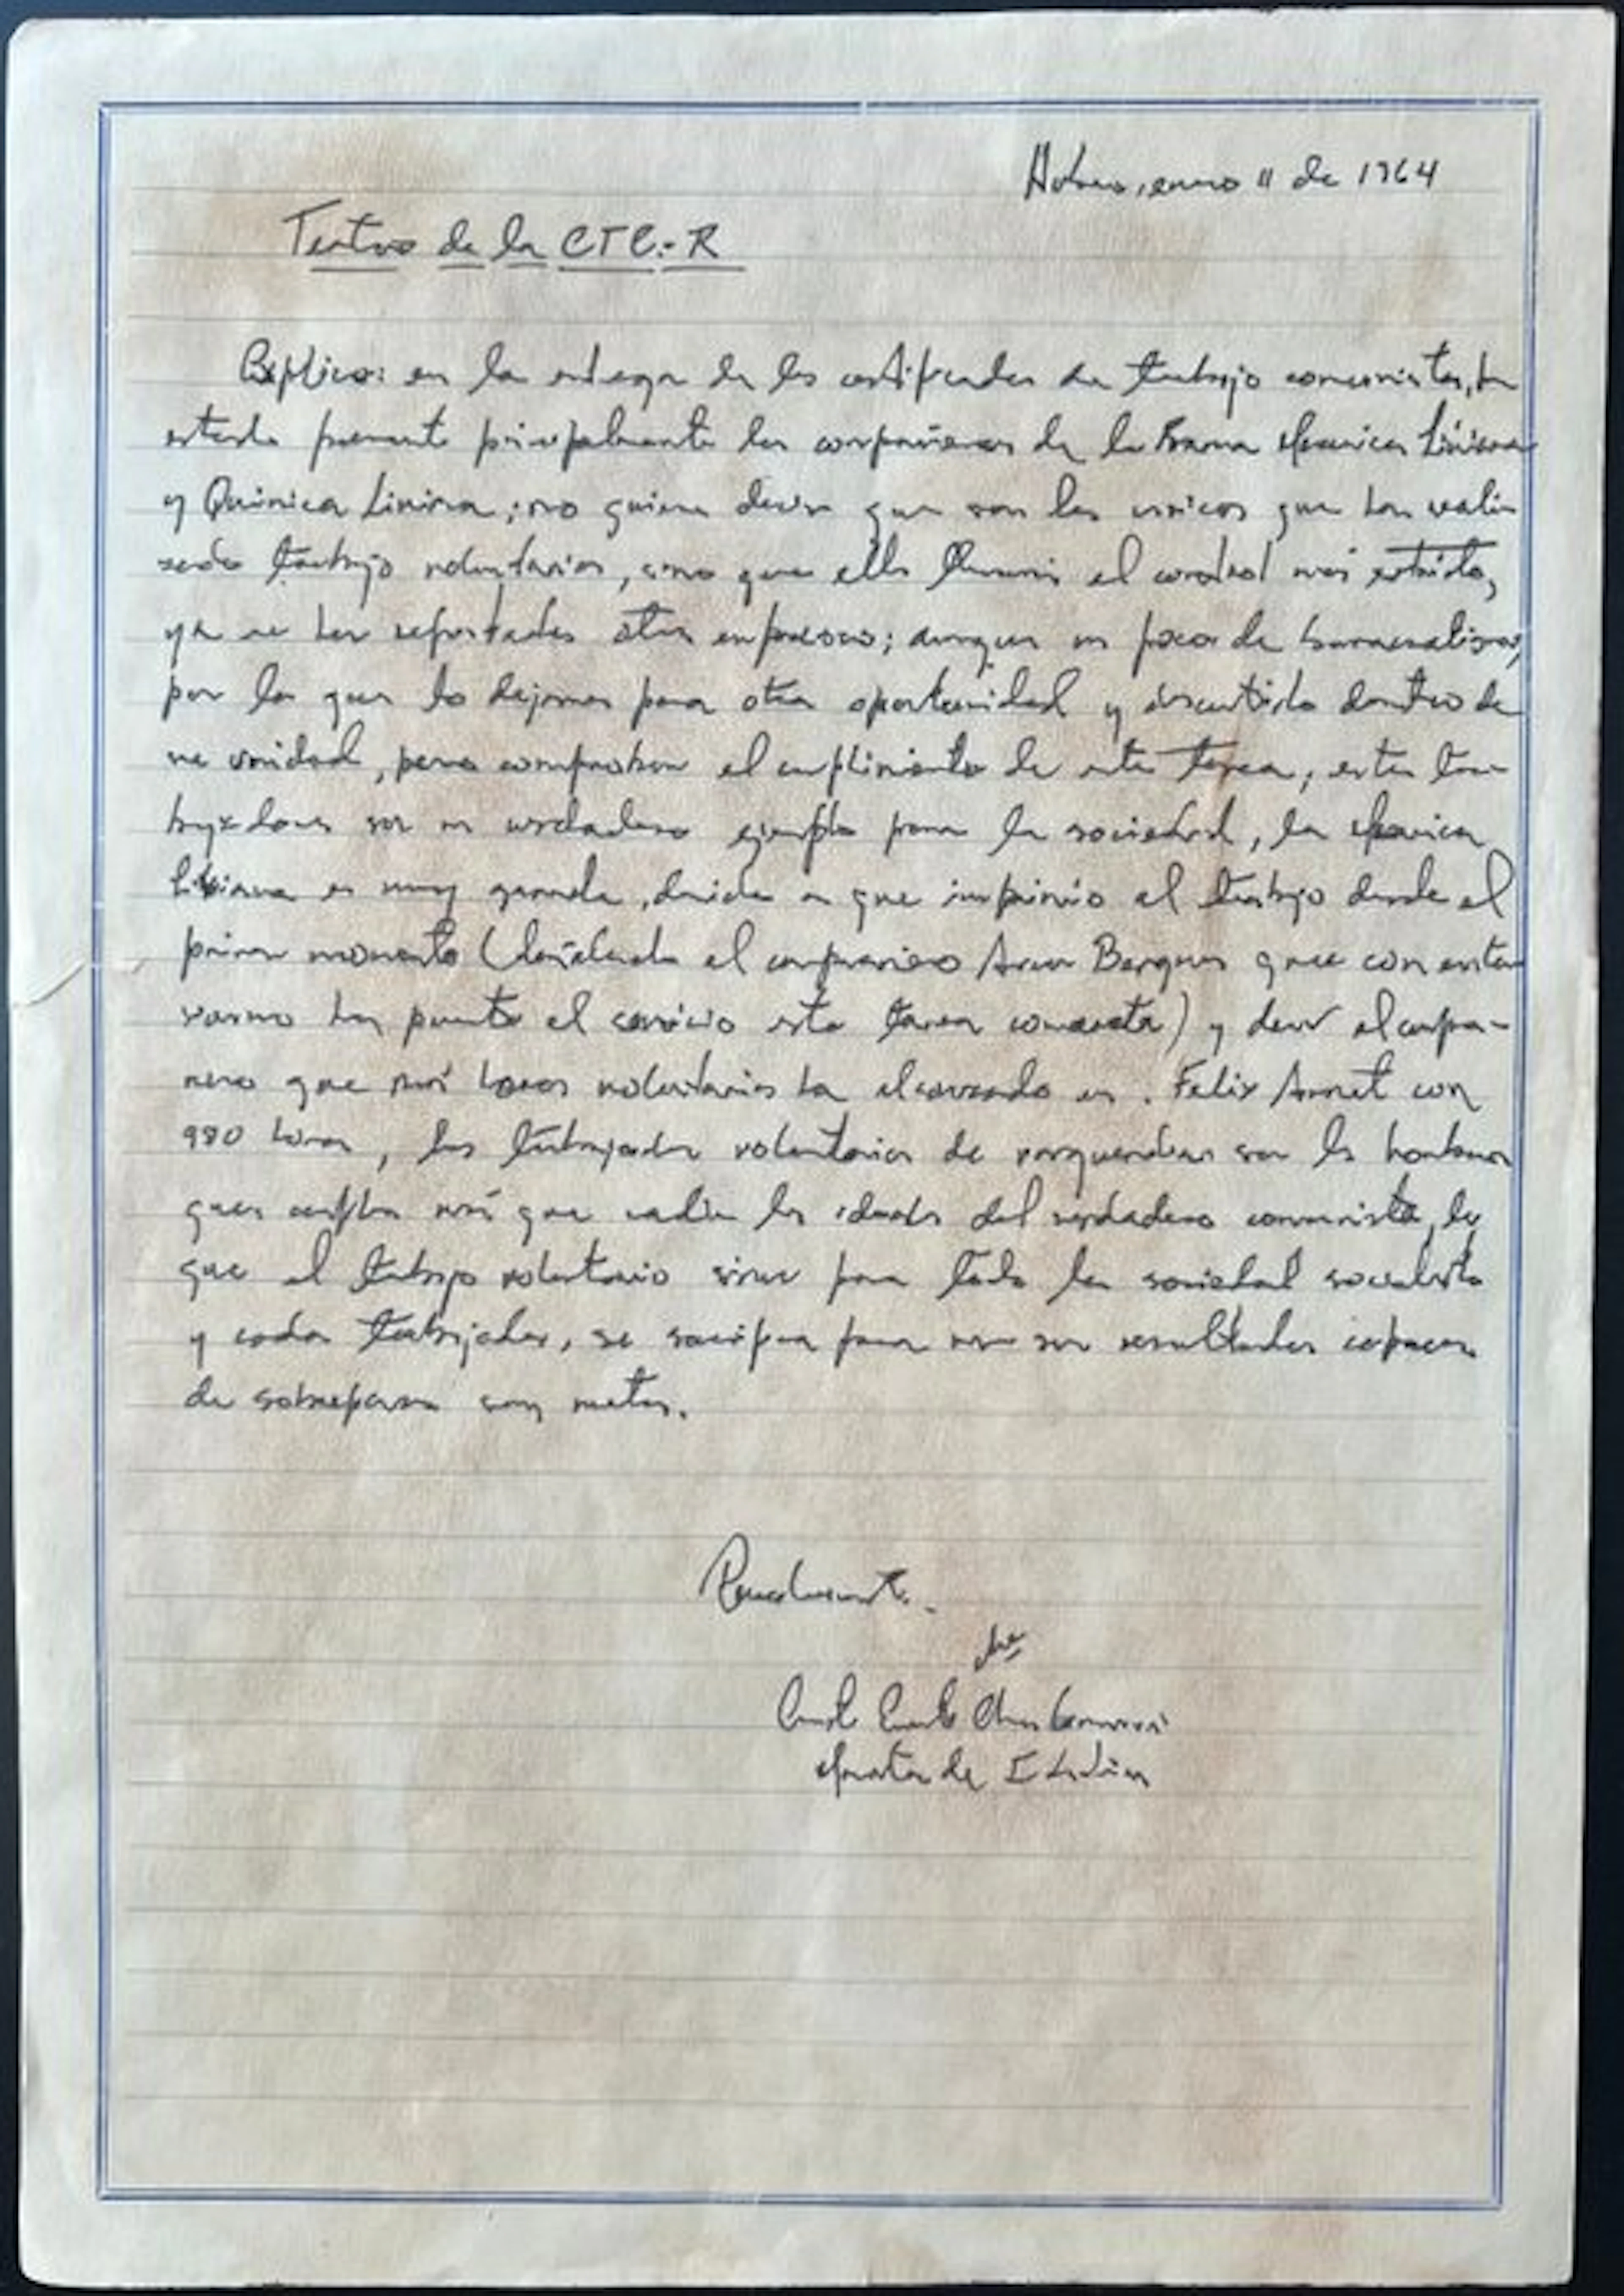 Habana, enero 11 de 1964
Teatro de la CTC.-R
Explico: en la entrega de los certificados de trabajo comunistas, ha
estado presente principalmente los compañeros de la Rama Mecanica Liviana
y Quimica Liviana; no quiere decir que son los unicos que han reali-
zado trabajo voluntarios, sino que ella llevaron el control mas estricto,
ya se han reportados otras empresas; aunque un poco de
por lo que lo dejamos para otra oportunidad y discutirlo dentro de
su unidad, para comprobar el cumplimiento de esta tarea, estos tra-
bajadores son un verdadero ejemplo para la sociedad, la Mecanica
Liviana es muy grande, debido a que imprimio el trabajo desde el
primer momento ( el compañero Arun que con
ha puesto el servicio esta tarea concreta) y decir el compa-
nero que más horas voluntarias ha alcanzado es. Felix Arnet con
980 horas, los trabajador voluntarios de son los hombres
que cumplen más que nadie los ideales del verdadero comunista, ley
que el trabajo voluntario sirve para toda la sociedad socialista
y cada trabajador, se sacrifica para ver sus resultados capaces
de sobrepasar sus metas.
Che
Ernesto Che Guevara
de